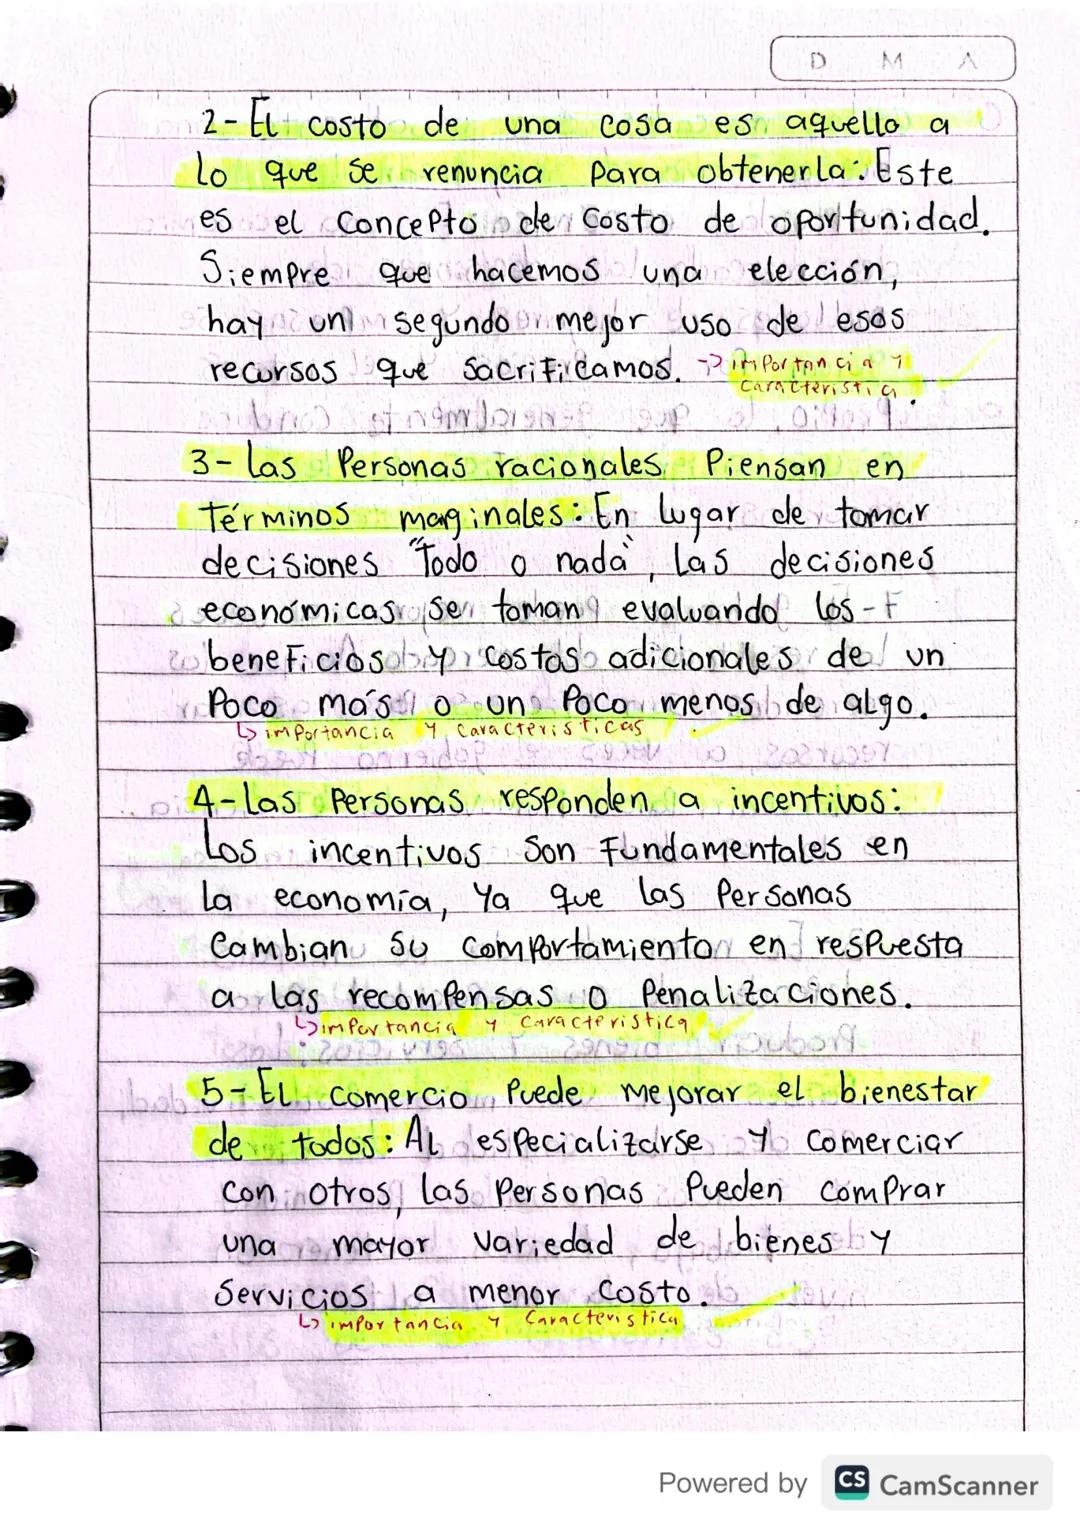 D M A
2- El costo de una cosa es aquello a
lo que se renuncia para obtenerla: Este
es el concepto de costo de oportunidad.
Siempre que hacemos una elección,
hay un segundo mejor uso de esos
recursos que sacrificamos. → importancia y
característica.
3- las Personas racionales Piensan en
términos marginales: En lugar de tomar
decisiones "Todo o nada", las decisiones
económicas se toman evaluando los
beneficios y costos adicionales de un
Poco más o un Poco menos de algo.
↳ importancia y características
4- Las Personas responden a incentivos:
Los incentivos son Fundamentales en
la economía, ya que las Personas
cambian su comportamiento en respuesta
a las recompensas o Penalizaciones.
↳ importancia y característica
5- El comercio Puede mejorar el bienestar
de todos: Al especializarse y comerciar
con otros, las personas Pueden comprar
una mayor variedad de bienes y
Servicios a menor costo.
↳ importancia y característica
Powered by CS CamScanner